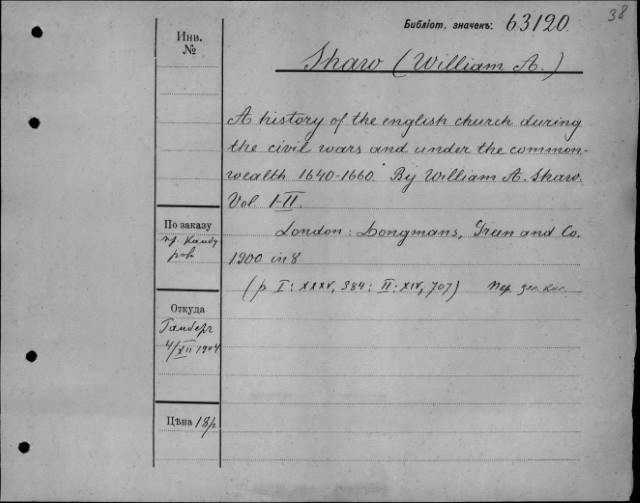 38
Библіот. значекъ: 63120
Инв.
№
Shaw (William A.)
A history of the english church during
the civil wars and under the common-
wealth 1640-1660. By William A. Shaw.
Vol. I-II.
London: Longmans, Green and Co.
1900 in 8
(p I: XXXV, 384: II: XIV, 707) пер.
По заказу
пр.
Откуда
4/XII 1904
Цѣна 18р